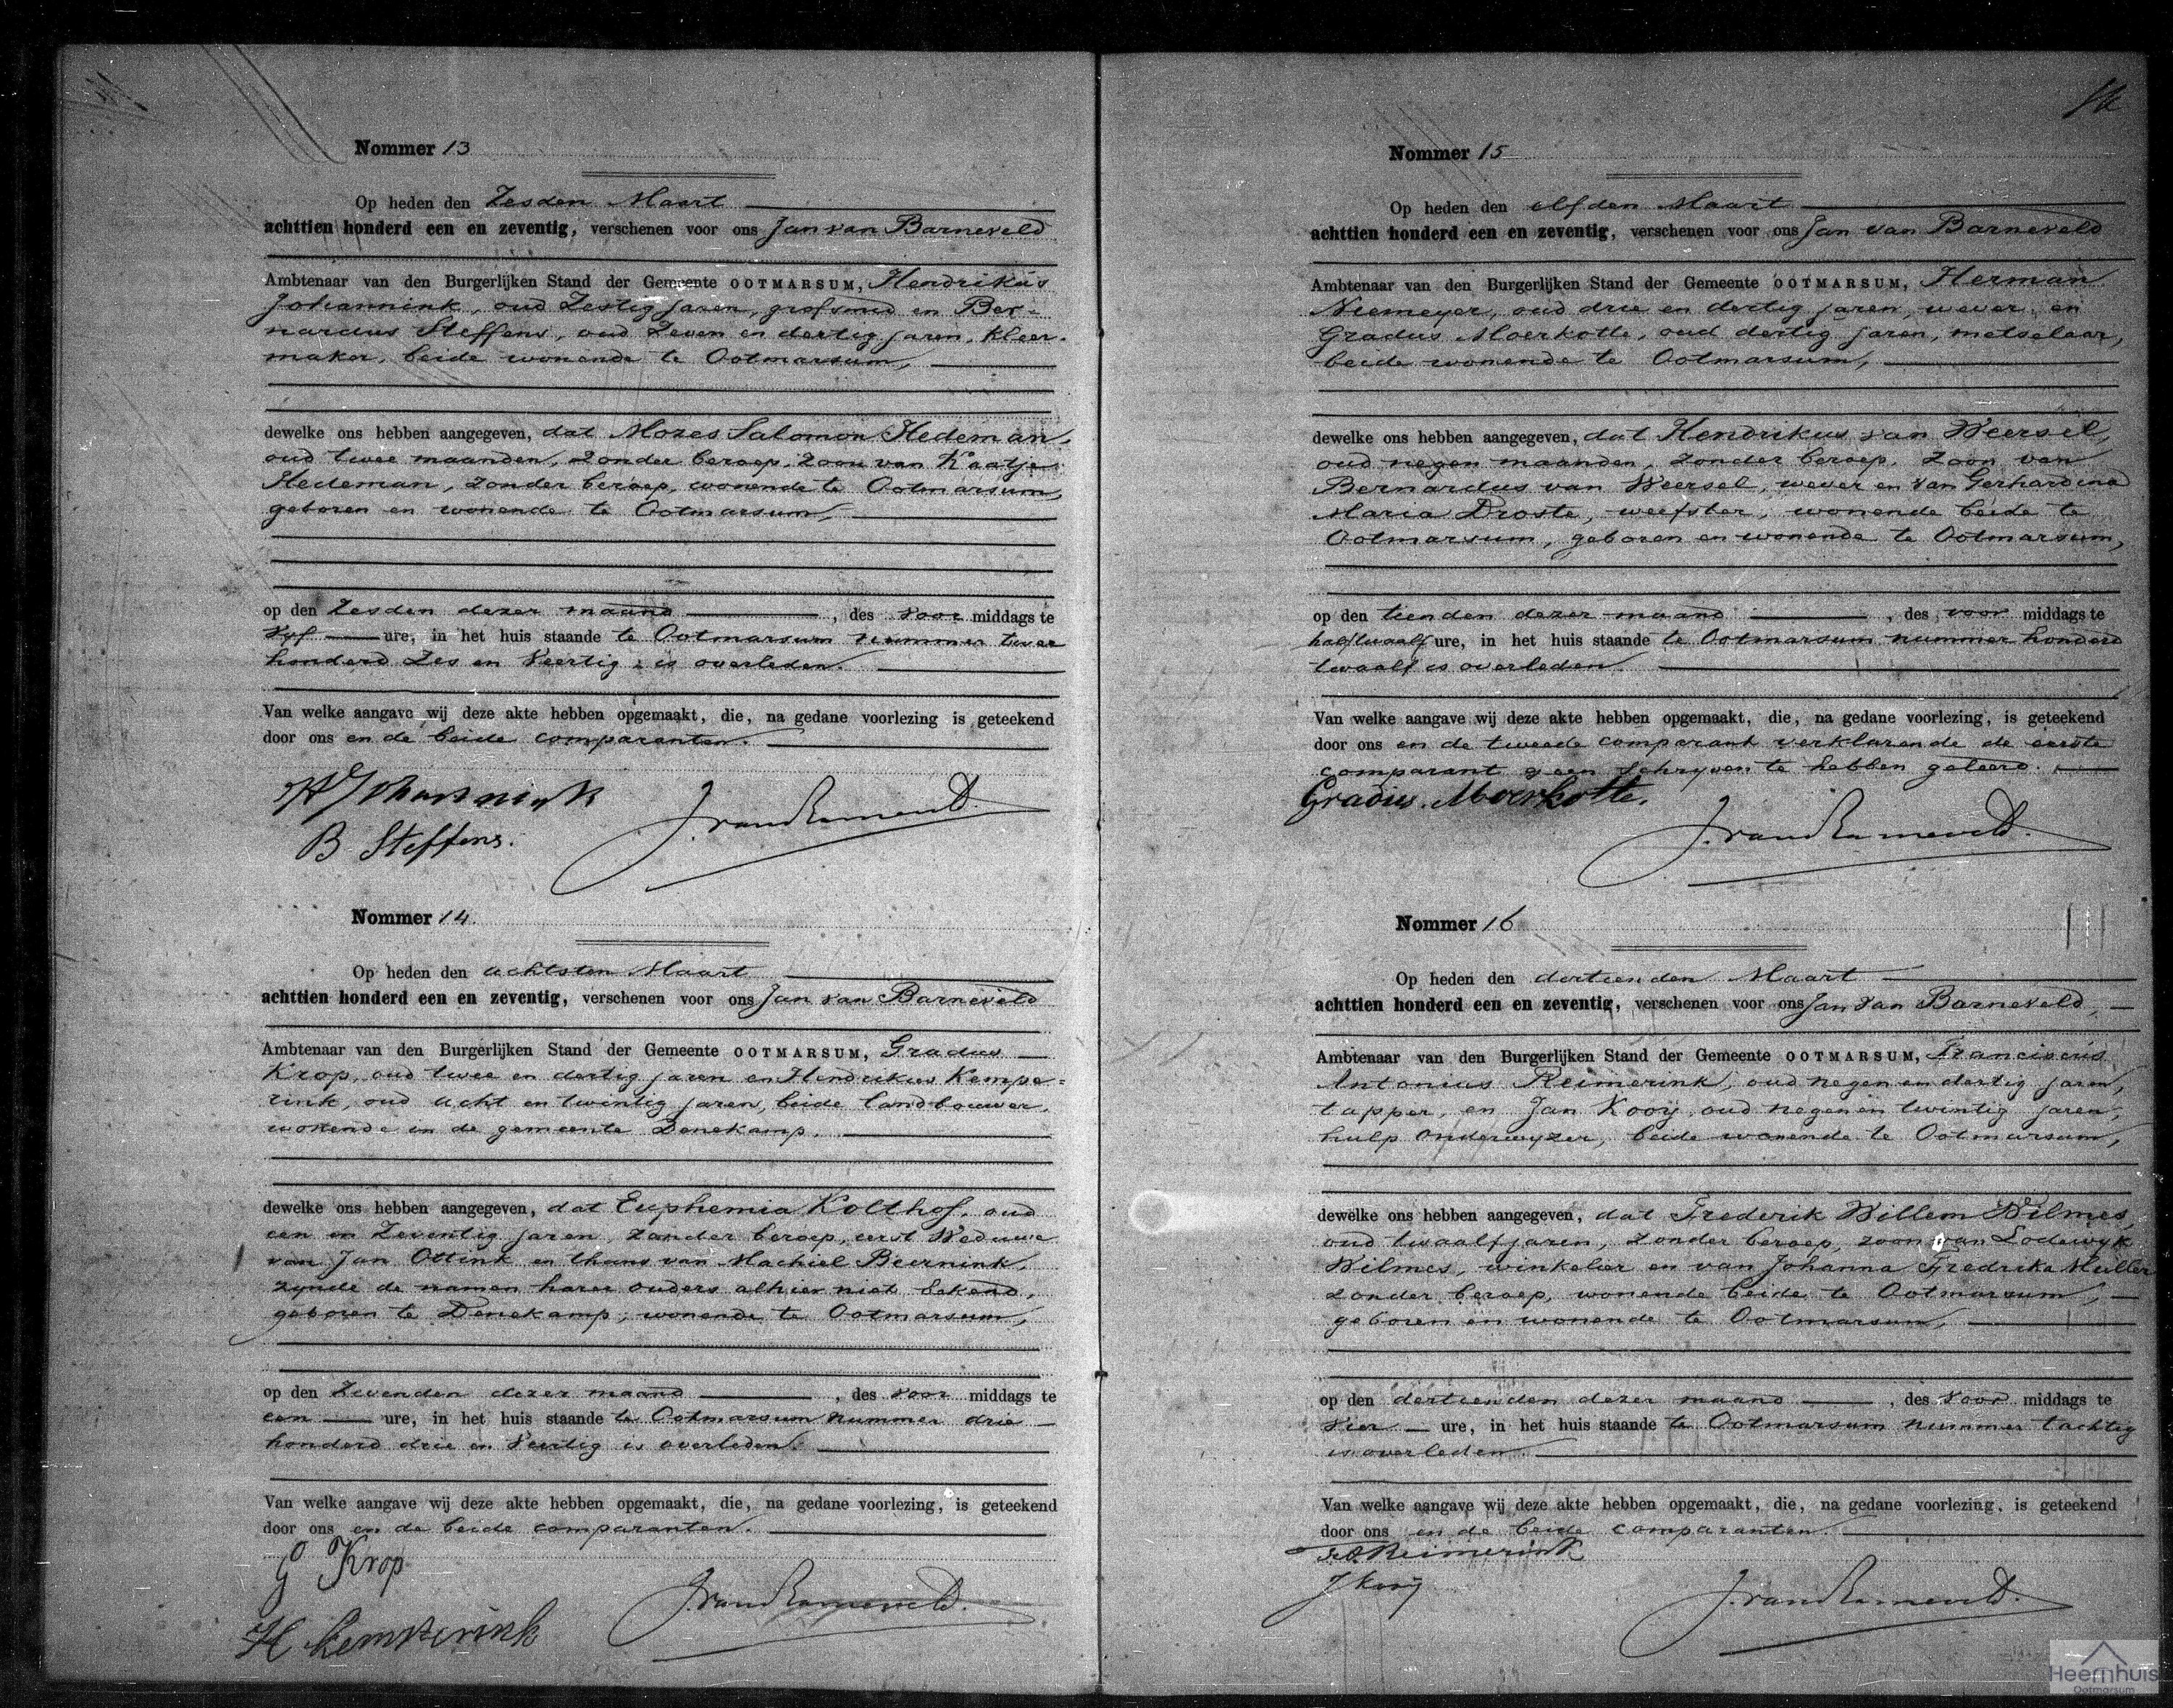 Nommer 13
Op heden den Zesden Maart
achttien honderd een en zeventig, verschenen voor ons Jan van Barneveld
Ambtenaar van den Burgerlijken Stand der Gemeente OOTMARSUM, Hendrikus
Johannink, oud Zestig jaren, grofsmid en Ber-
nardus Steffens, oud Zeven en dertig jaren, kleer-
maker, beide wonende te Ootmarsum,
dewelke ons hebben aangegeven, dat Mozes Salomon Hedeman,
oud twee maanden, zonder beroep, zoon van Kaatje
Hedeman, zonder beroep, wonende te Ootmarsum,
geboren en wonende te Ootmarsum,
op den Zesden dezer maand, des voor middags te
vyf ure, in het huis staande te Ootmarsum nummer twee
honderd Zes en Veertig is overleden.
Van welke aangave wij deze akte hebben opgemaakt, die, na gedane voorlezing is geteekend
door ons en de beide comparanten.
H Johannink
B Steffens.
J. van Barneveld.
Nommer 14.
Op heden den achtsten Maart
achttien honderd een en zeventig, verschenen voor ons Jan van Barneveld
Ambtenaar van den Burgerlijken Stand der Gemeente OOTMARSUM, Gradus
Krop, oud twee en dertig jaren en Hendrikus Kempe=
rink, oud acht en twintig jaren, beide landbouwer,
wonende in de gemeente Denekamp.
dewelke ons hebben aangegeven, dat Euphemia Kolthof, oud
een en Zeventig jaren, zonder beroep, eerst Weduwe
van Jan Ottink en thans van Machiel Beernink,
zynde de namen harer ouders alhier niet bekend,
geboren te Denekamp, wonende te Ootmarsum,
op den Zevenden dezer maand, des voor middags te
een ure, in het huis staande te Ootmarsum nummer drie
honderd drie en Veertig is overleden.
Van welke aangave wij deze akte hebben opgemaakt, die, na gedane voorlezing, is geteekend
door ons en de beide comparanten.
G Krop
H Kemperink
J. van Barneveld.
14
Nommer 15
Op heden den elfden Maart
achttien honderd een en zeventig, verschenen voor ons Jan van Barneveld
Ambtenaar van den Burgerlijken Stand der Gemeente OOTMARSUM, Herman
Niemeyer, oud drie en dertig jaren, wever, en
Gradus Moerkotte, oud dertig jaren, metselaar,
beide wonende te Ootmarsum,
dewelke ons hebben aangegeven, dat Hendrikus van Weersel,
oud negen maanden, zonder beroep, zoon van
Bernardus van Weersel, wever en van Gerhardina
Maria Droste, weefster, wonende beide te
Ootmarsum, geboren en wonende te Ootmarsum,
op den tienden dezer maand, des voor middags te
halftwaalf ure, in het huis staande te Ootmarsum nummer honderd
twaalf is overleden.
Van welke aangave wij deze akte hebben opgemaakt, die, na gedane voorlezing, is geteekend
door ons en de tweede comparant verklarende de eerste
comparant geen schryven te hebben geleerd.
Gradus Moerkotte.
J. van Barneveld.
Nommer 16
Op heden den dertienden Maart
achttien honderd een en zeventig, verschenen voor ons Jan van Barneveld,
Ambtenaar van den Burgerlijken Stand der Gemeente OOTMARSUM, Franciscus
Antonius Reimerink, oud negen en dertig jaren,
tapper, en Jan Kooy, oud negen en twintig jaren,
hulp onderwyzer, beide wonende te Ootmarsum,
dewelke ons hebben aangegeven, dat Frederik Willem Wilmes,
oud twaalf jaren, zonder beroep, zoon van Lodewyk
Wilmes, winkelier en van Johanna Fredrika Muller
zonder beroep, wonende beide te Ootmarsum,
geboren en wonende te Ootmarsum,
op den dertienden dezer maand, des voor middags te
vier ure, in het huis staande te Ootmarsum nummer tachtig
is overleden.
Van welke aangave wij deze akte hebben opgemaakt, die, na gedane voorlezing, is geteekend
door ons en de beide comparanten.
Reimerink
J Kooij
J. van Barneveld.
Heemhuis
Ootmarsum